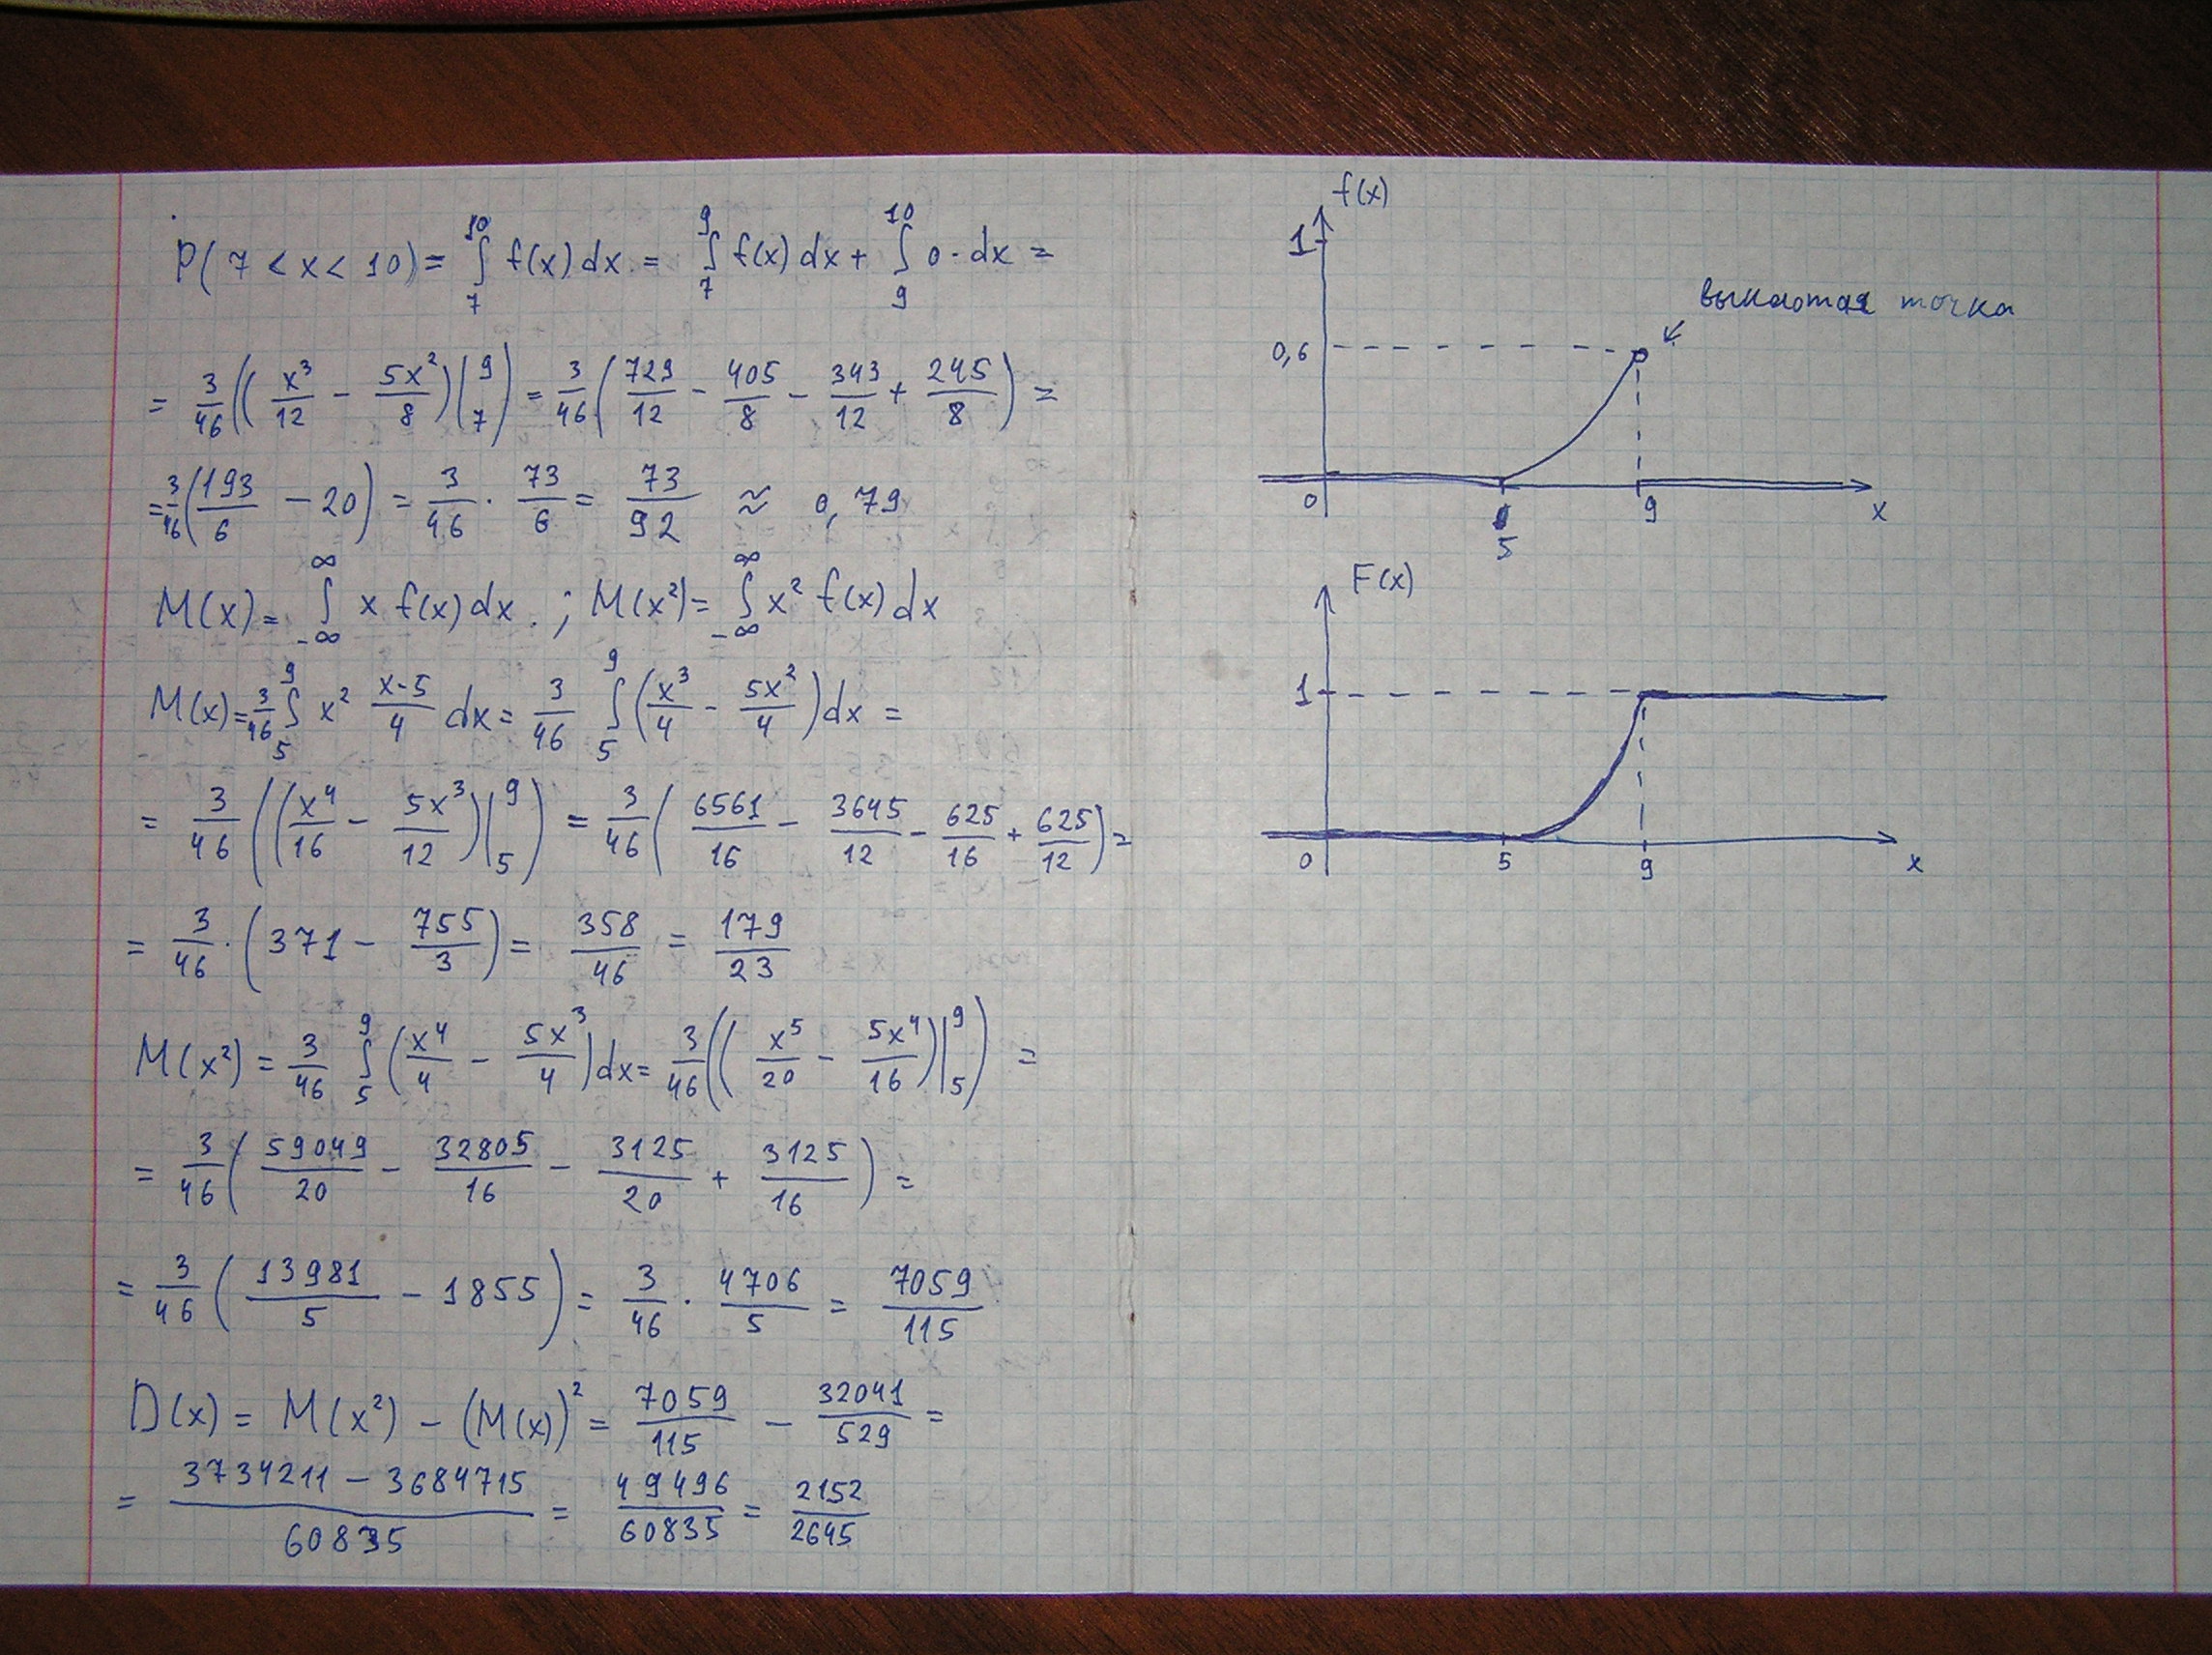 P(7 < x < 10) = ∫₇¹⁰ f(x) dx = ∫₇⁹ f(x) dx + ∫₉¹⁰ 0 · dx =
= 3/46 ((x³/12 − 5x²/8)|₇⁹) = 3/46 (729/12 − 405/8 − 343/12 + 245/8) =
= 3/46 (193/6 − 20) = 3/46 · 73/6 = 73/92 ≈ 0,79
M(x) = ∫₋∞^∞ x f(x) dx. ; M(x²) = ∫₋∞^∞ x² f(x) dx
M(x) = 3/46 ∫₅⁹ x² (x-5)/4 dx = 3/46 ∫₅⁹ (x³/4 − 5x²/4) dx =
= 3/46 ((x⁴/16 − 5x³/12)|₅⁹) = 3/46 (6561/16 − 3645/12 − 625/16 + 625/12) =
= 3/46 · (371 − 755/3) = 358/46 = 179/23
M(x²) = 3/46 ∫₅⁹ (x⁴/4 − 5x³/4) dx = 3/46 ((x⁵/20 − 5x⁴/16)|₅⁹) =
= 3/46 (59049/20 − 32805/16 − 3125/20 + 3125/16) =
= 3/46 (13981/5 − 1855) = 3/46 · 4706/5 = 7059/115
D(x) = M(x²) − (M(x))² = 7059/115 − 32041/529 =
= (3734211 − 3684715)/60835 = 49496/60835 = 2152/2645
f(x)
1
точка
0,6
0
5
9
x
F(x)
1
0
5
9
x